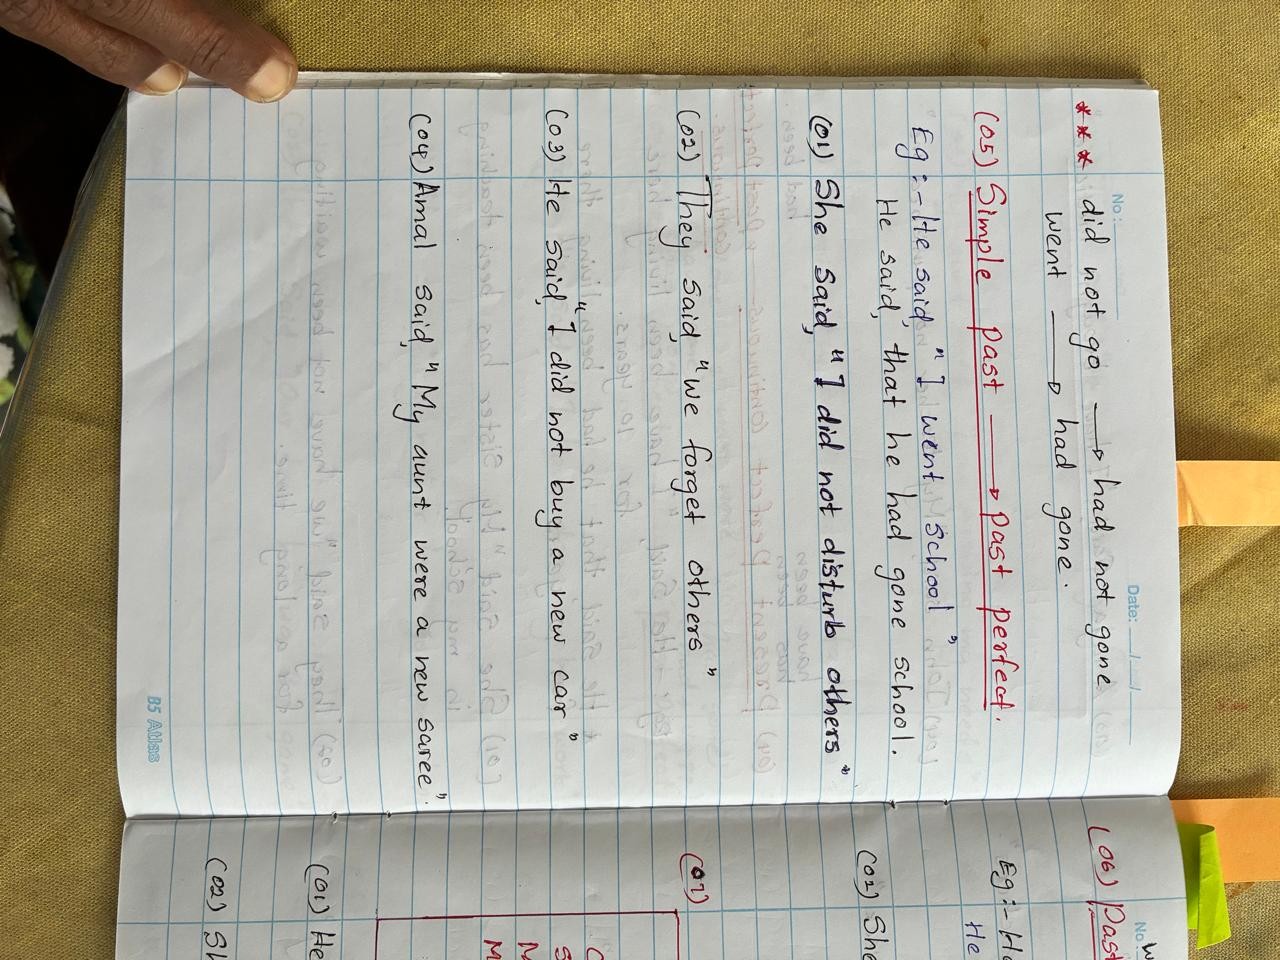 No:
Date:
*** did not go → had not gone
went → had gone.
(05) Simple past → past perfect.
Eg :- He said, "I went school"
He said, that he had gone school.
(01) She said, "I did not disturb others"
(02) They said, "we forget others"
(03) He said, "I did not buy a new car"
(04) Amal said, "My aunt were a new saree".
B5 Atlas
No
(06) Past
Eg :- He
He
(02) She
(07)
(01) He
(02) Sh